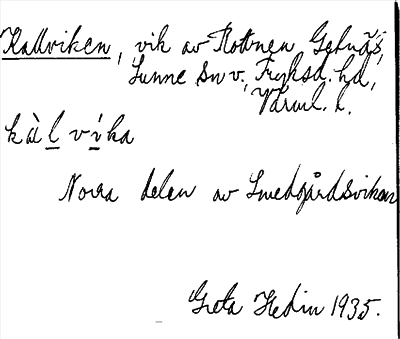 Kallviken, vik av Rottnen Getnäs,
Sunne sn v., Fryksd. hd,
Värml. l.
kàl víka
Norra delen av Smedgårdsviken
Greta Hedin 1935.